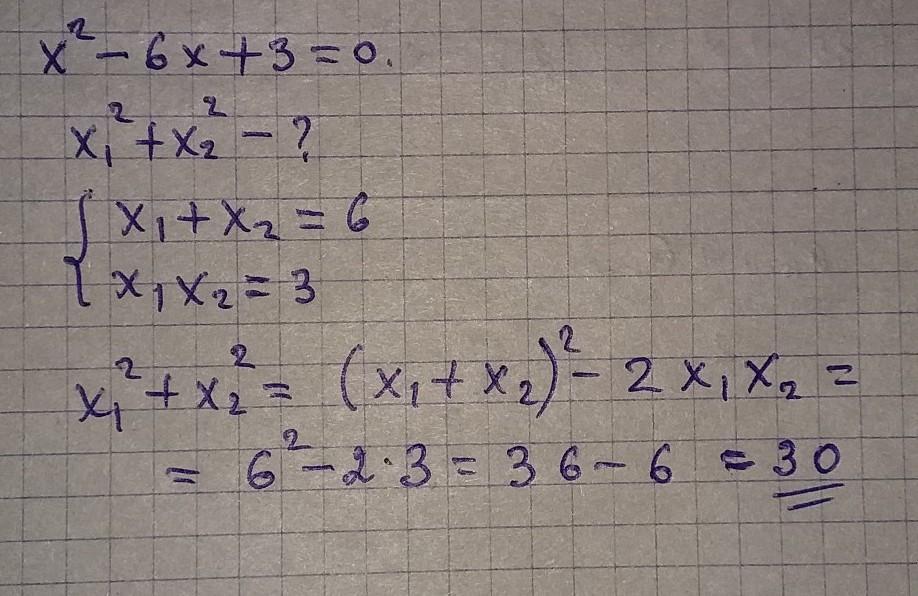 x² − 6x + 3 = 0.
x₁² + x₂² − ?
{ x₁ + x₂ = 6
x₁x₂ = 3
x₁² + x₂² = (x₁ + x₂)² − 2x₁x₂ =
= 6² − 2·3 = 36 − 6 = 30